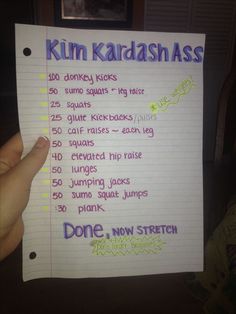 Kim KardashAss
100 donkey kicks
50 sumo squats - leg raise
25 squats
25 glute kickbacks/pulses
50 calf raises ~ each leg
50 squats
40 elevated hip raise
50 lunges
50 jumping jacks
50 sumo squat jumps
:30 plank
Done, NOW STRETCH